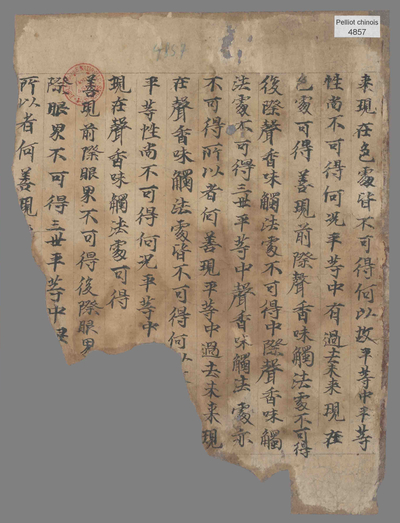 Pelliot chinois
4857
4857
來現在色處皆不可得何以故平等中平等
性尚不可得何況平等中有過去未來現在
色處可得善現前際聲香味觸法處不可得
後際聲香味觸法處不可得中際聲香味觸
法處不可得三世平等中聲香味觸法處亦
不可得所以者何善現平等中過去未來現
在聲香味觸法處皆不可得何以
平等性尚不可得何況平等中
現在聲香味觸法處可得
善現前際眼界不可得後際眼界
際眼界不可得三世平等中
所以者何善現